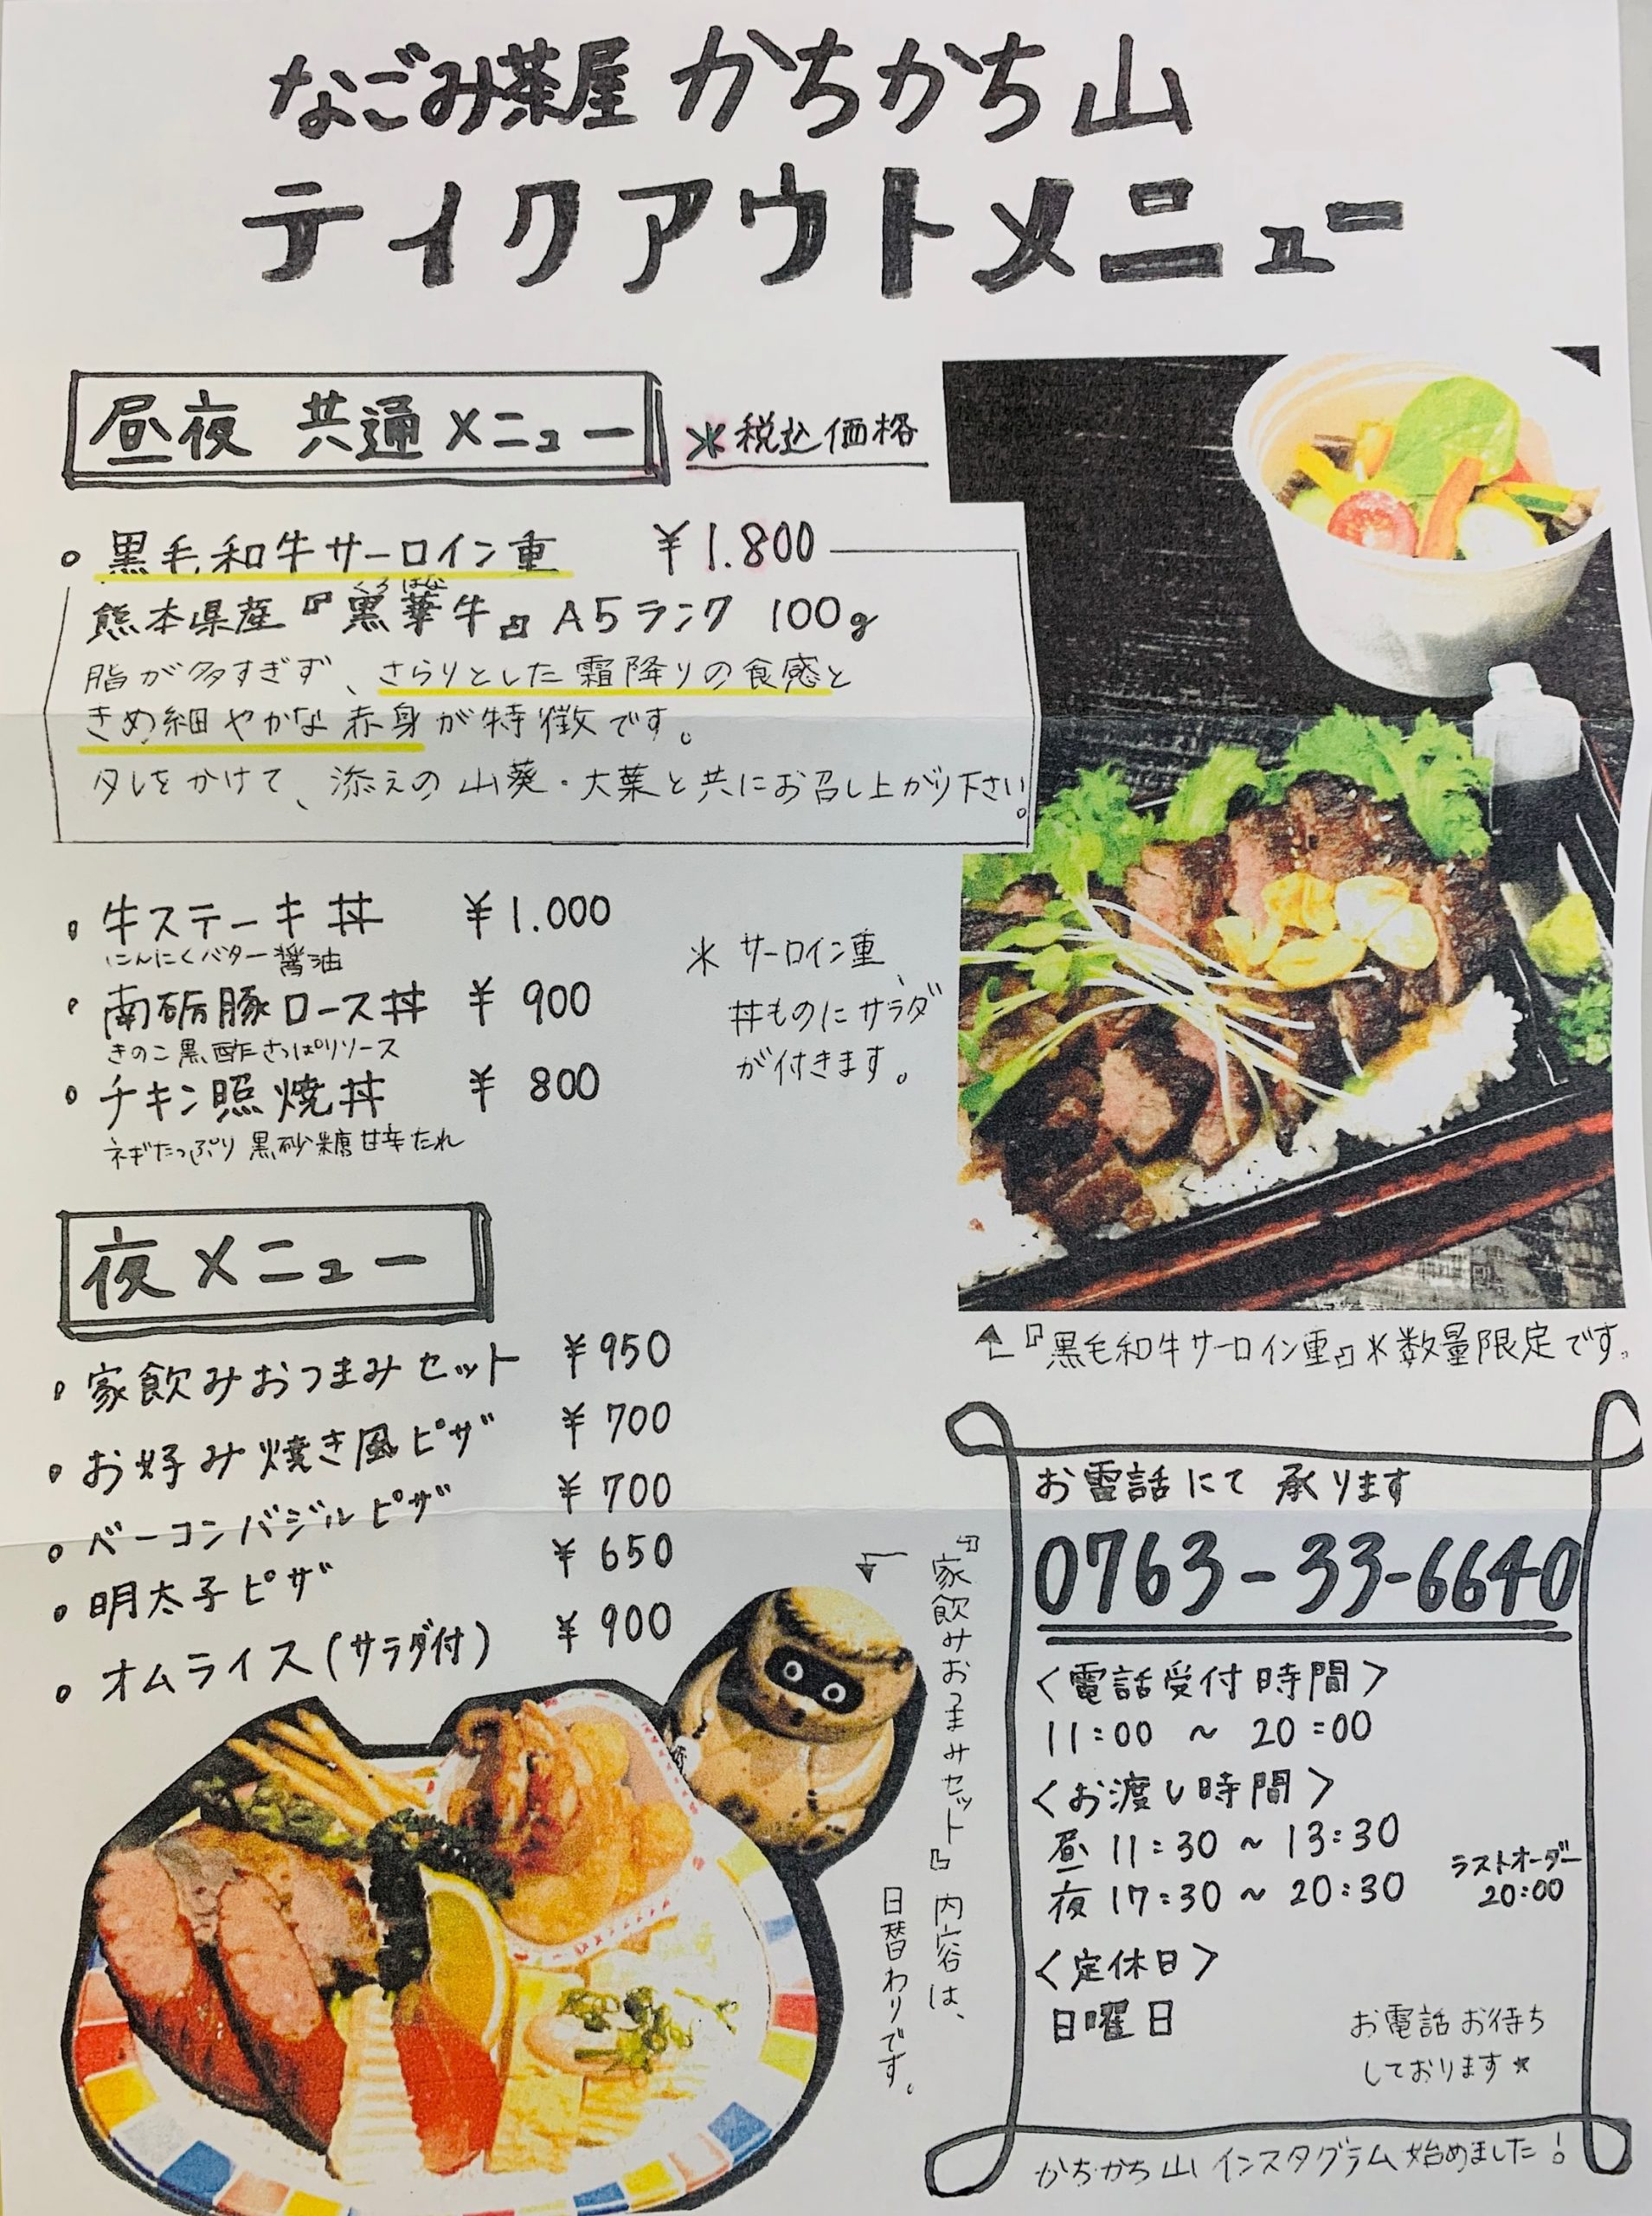 なごみ茶屋 かちかち山
テイクアウトメニュー
昼夜 共通メニュー
※税込価格
。黒毛和牛サーロイン重 ¥1.800
くろはな
熊本県産『黒華牛』A5ランク 100g
脂が多すぎず、さらりとした霜降りの食感と
きめ細やかな赤身が特徴です。
タレをかけて、添えの山葵・大葉と共にお召し上がり下さい。
。牛ステーキ丼 ¥1.000
にんにくバター醤油
。南砺豚ロース丼 ¥900
きのこ黒酢さっぱりソース
。チキン照焼丼 ¥800
ネギたっぷり黒砂糖甘辛たれ
※サーロイン重、
丼ものにサラダ
が付きます。
↑『黒毛和牛サーロイン重』※数量限定です。
夜メニュー
。家飲みおつまみセット ¥950
。お好み焼き風ピザ ¥700
。ベーコンバジルピザ ¥700
。明太子ピザ ¥650
。オムライス(サラダ付) ¥900
『家飲みおつまみセット』内容は、
日替わりです。
お電話にて承ります
0763-33-6640
<電話受付時間>
11:00 ~ 20:00
<お渡し時間>
昼 11:30 ~ 13:30
夜 17:30 ~ 20:30
ラストオーダー
20:00
<定休日>
日曜日
お電話お待ち
しております☆
かちかち山インスタグラム始めました!